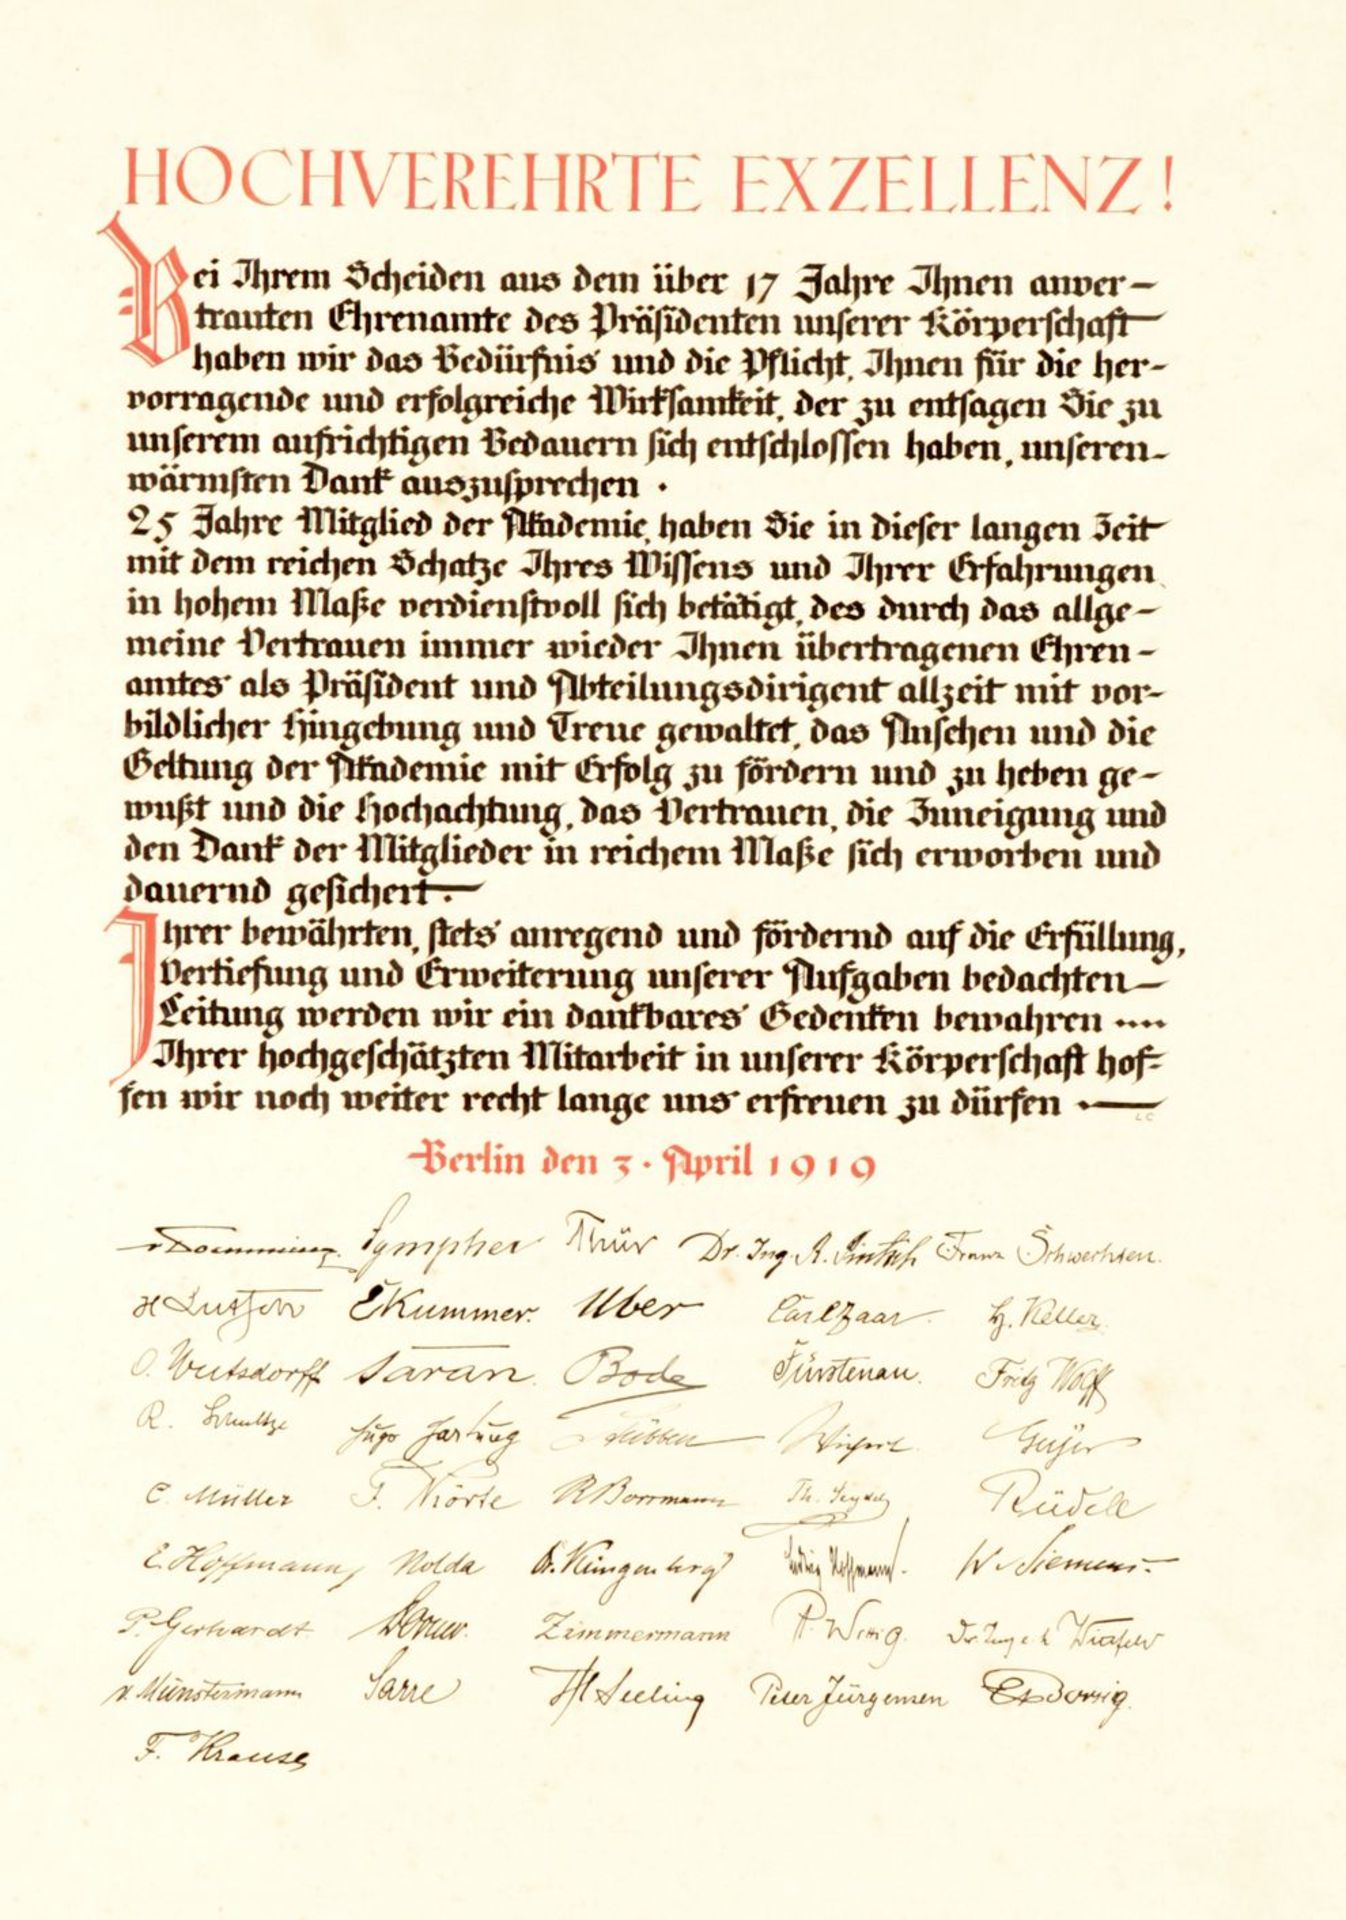 HOCHVEREHRTE EXZELLENZ!
Bei Ihrem Scheiden aus dem über 17 Jahre Ihnen anver-
trauten Ehrenamte des Präsidenten unserer Körperschaft
haben wir das Bedürfnis und die Pflicht, Ihnen für die her-
vorragende und erfolgreiche Wirksamkeit, der zu entsagen Sie zu
unserem aufrichtigen Bedauern sich entschlossen haben, unseren
wärmsten Dank auszusprechen.
25 Jahre Mitglied der Akademie, haben Sie in dieser langen Zeit
mit dem reichen Schatze Ihres Wissens und Ihrer Erfahrungen
in hohem Maße verdienstvoll sich betätigt, des durch das allge-
meine Vertrauen immer wieder Ihnen übertragenen Ehren-
amtes als Präsident und Abteilungsdirigent allzeit mit vor-
bildlicher Hingebung und Treue gewaltet, das Ansehen und die
Geltung der Akademie mit Erfolg zu fördern und zu heben ge-
wußt und die Hochachtung, das Vertrauen, die Zuneigung und
den Dank der Mitglieder in reichem Maße sich erworben und
dauernd gesichert.
Ihrer bewährten, stets anregend und fördernd auf die Erfüllung,
Vertiefung und Erweiterung unserer Aufgaben bedachten
Leitung werden wir ein dankbares Gedenken bewahren
Ihrer hochgeschätzten Mitarbeit in unserer Körperschaft hof-
fen wir noch weiter recht lange uns erfreuen zu dürfen
LC
Berlin den 3. April 1919
Sympher Thür Dr. Ing. Franz Schwechten.
E Kummer. Uber Carl Zaar. H. Keller
O. Wutsdorff Saran. Bode Fürstenau. Fritz Wolff
R. Schultze Hugo Hartung Stübben Geyer
C. Müller F. Körte R Borrmann Th. Seydel Rüdell
E. Hoffmann, Nolda Dr. Klingenberg Ludwig Hoffmann. W v Siemens.
P. Gerhardt Zimmermann P. Wittig.
v. Münstermann Sarre H Seeling Peter Jürgensen Borsig.
F. Krause